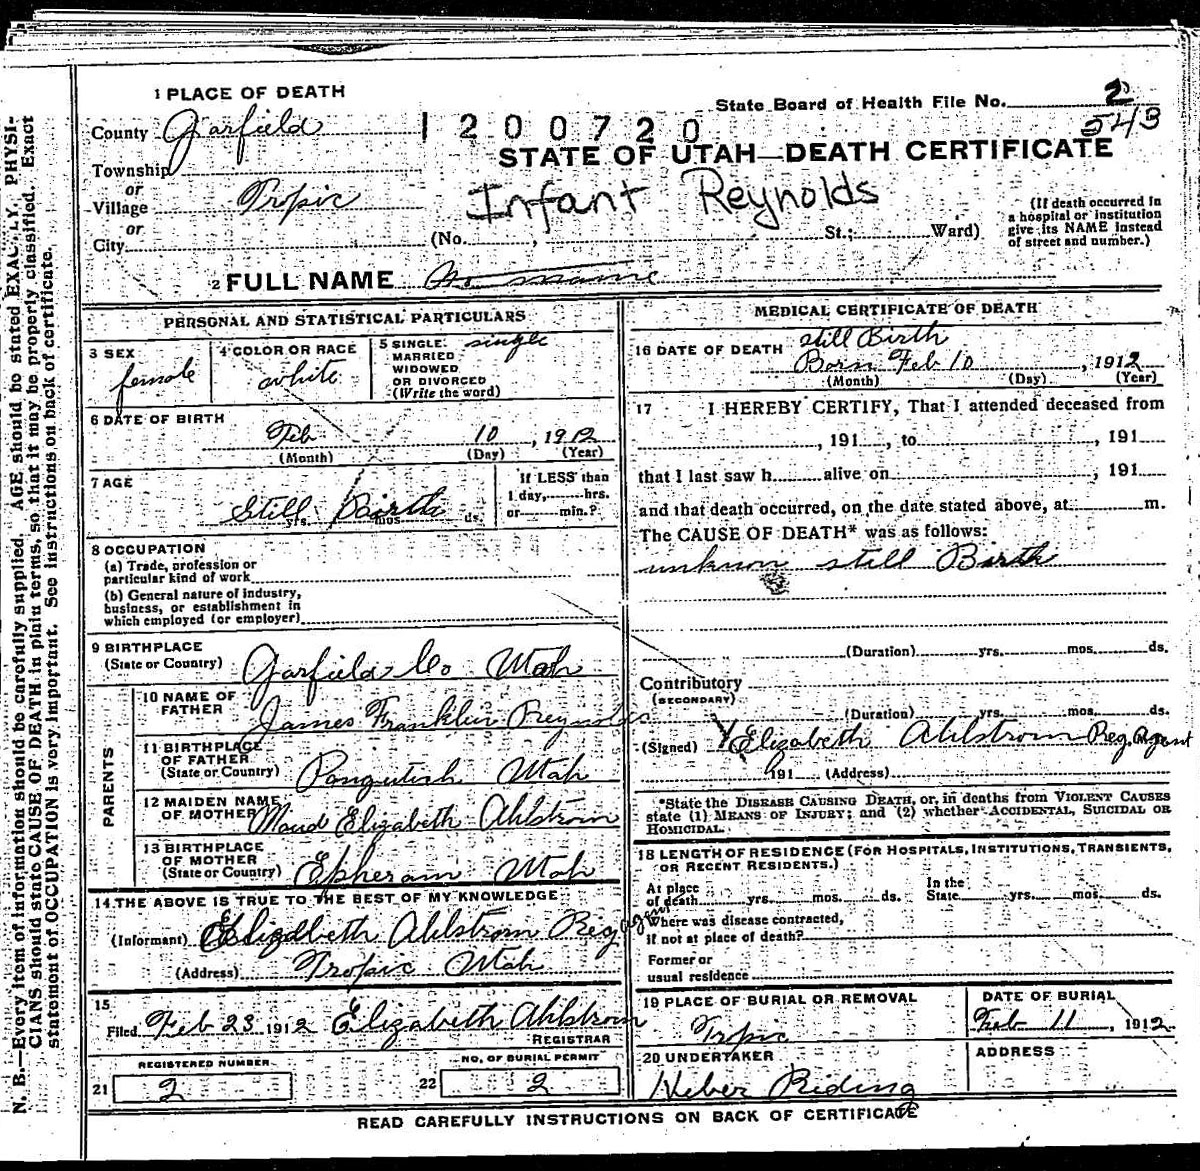 N. B.—Every item of information should be carefully supplied. AGE should be stated EXACTLY. PHYSI-
CIANS should state CAUSE OF DEATH in plain terms, so that it may be properly classified. Exact
statement of OCCUPATION is very important. See instructions on back of certificate.
1 PLACE OF DEATH
State Board of Health File No. 2
543
County Garfield
1200720
STATE OF UTAH—DEATH CERTIFICATE
Township
or
Village Tropic
Infant Reynolds
or
City (No. , St.; Ward)
(If death occurred in
a hospital or institution
give its NAME instead
of street and number.)
2 FULL NAME No name
PERSONAL AND STATISTICAL PARTICULARS
3 SEX
female
4 COLOR OR RACE
white
5 SINGLE single
MARRIED
WIDOWED
OR DIVORCED
(Write the word)
6 DATE OF BIRTH
Feb 10, 1912
(Month) (Day) (Year)
7 AGE
Still Birth
yrs. mos. ds.
If LESS than
1 day, hrs.
or min.?
8 OCCUPATION
(a) Trade, profession or
particular kind of work
(b) General nature of industry,
business, or establishment in
which employed (or employer)
9 BIRTHPLACE
(State or Country) Garfield Co Utah
PARENTS
10 NAME OF
FATHER James Franklin Reynolds
11 BIRTHPLACE
OF FATHER
(State or Country) Panguitch Utah
12 MAIDEN NAME
OF MOTHER Maud Elizabeth Ahlstrom
13 BIRTHPLACE
OF MOTHER
(State or Country) Epheram Utah
14 THE ABOVE IS TRUE TO THE BEST OF MY KNOWLEDGE
(Informant) Elizabeth Ahlstrom Reg agent
(Address) Tropic Utah
15
Filed Feb 23 1912 Elizabeth Ahlstrom
REGISTRAR
REGISTERED NUMBER
21 2
NO. OF BURIAL PERMIT
22 2
MEDICAL CERTIFICATE OF DEATH
still Birth
16 DATE OF DEATH Born Feb 10, 1912
(Month) (Day) (Year)
17 I HEREBY CERTIFY, That I attended deceased from
, 191 , to , 191
that I last saw h alive on , 191
and that death occurred, on the date stated above, at m.
The CAUSE OF DEATH* was as follows:
unknown still Birth
(Duration) yrs. mos. ds.
Contributory
(SECONDARY)
(Duration) yrs. mos. ds.
(Signed) Elizabeth Ahlstrom Reg. Agent
191 (Address)
*State the DISEASE CAUSING DEATH, or, in deaths from VIOLENT CAUSES
state (1) MEANS OF INJURY; and (2) whether ACCIDENTAL, SUICIDAL OR
HOMICIDAL.
18 LENGTH OF RESIDENCE (FOR HOSPITALS, INSTITUTIONS, TRANSIENTS,
OR RECENT RESIDENTS.)
At place
of death yrs. mos. ds.
In the
State yrs. mos. ds.
Where was disease contracted,
if not at place of death?
Former or
usual residence
19 PLACE OF BURIAL OR REMOVAL
Tropic
DATE OF BURIAL
Feb 11, 1912
20 UNDERTAKER
Heber Riding
ADDRESS
READ CAREFULLY INSTRUCTIONS ON BACK OF CERTIFICATE